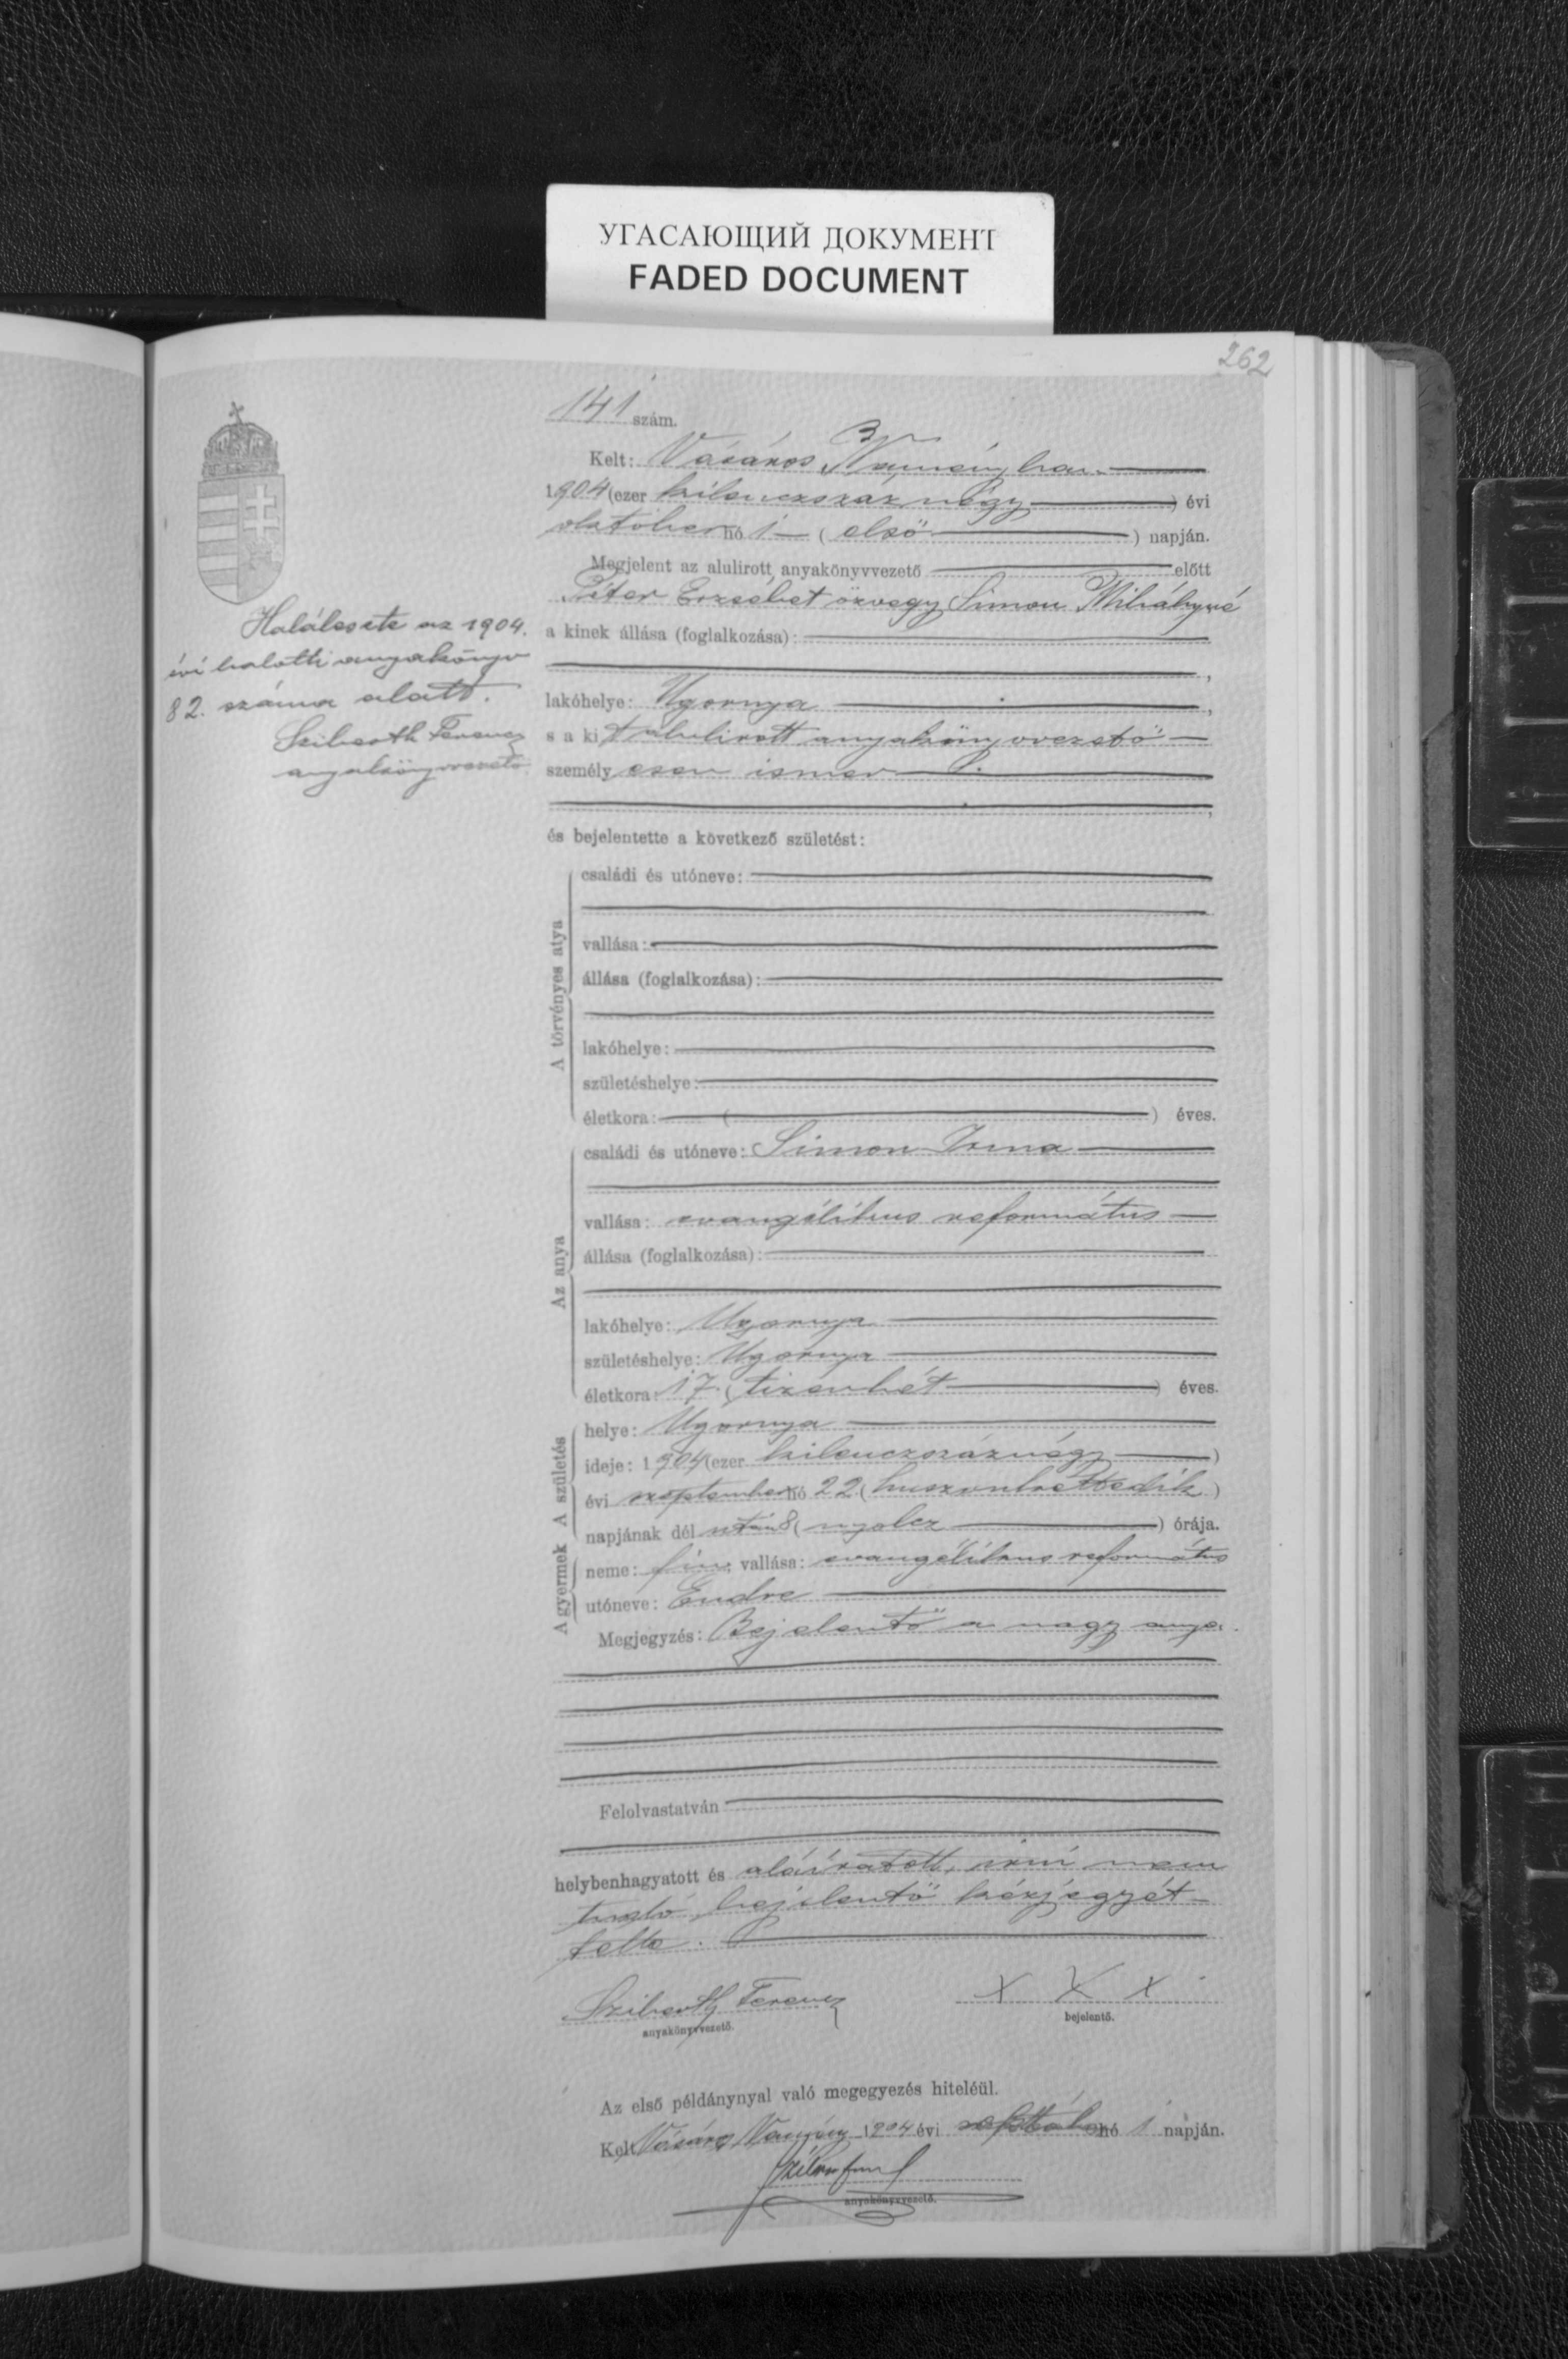 УГАСАЮЩИЙ ДОКУМЕНТ
FADED DOCUMENT
262
141 szám.
Kelt: Vásáros Naményban
1904 (ezer kilenczszáz négy ) évi
október hó 1 ( első ) napján.
Megjelent az alulirott anyakönyvvezető előtt
Péter Erzsébet özvegy Simon Mihályné
a kinek állása (foglalkozása):
lakóhelye: Ugornya ,
s a kit alulirott anyakönyvvezető
személyesen ismer
és bejelentette a következő születést:
A törvényes atya
családi és utóneve:
vallása:
állása (foglalkozása):
lakóhelye:
születéshelye:
életkora: ( ) éves.
Az anya
családi és utóneve: Simon Irma
vallása: evangélikus református
állása (foglalkozása):
lakóhelye: Ugornya
születéshelye: Ugornya
életkora: 17 (tizenhét ) éves.
A születés
helye: Ugornya
ideje: 1904 (ezer kilenczszáznégy )
évi szeptember hó 22 (huszonkettedik )
napjának dél után 8 (nyolcz ) órája.
A gyermek
neme: fiú; vallása: evangélikus református
utóneve: Endre
Megjegyzés: Bejelentő a nagy anya.
Felolvastatván
helybenhagyatott és aláíratott, írni nem
tudó bejelentő kézjegyét
tette.
Sziberth Ferencz x x x
anyakönyvvezető. bejelentő.
Az első példánynyal való megegyezés hiteléül.
Kelt Vásáros Namény 1904 évi október hó 1 napján.
anyakönyvvezető.
Halálesete az 1904.
évi halotti anyakönyv
82. száma alatt.
Sziberth Ferencz
anyakönyvvezető